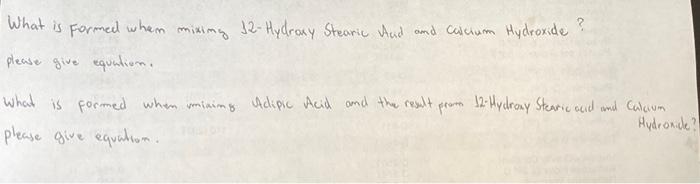 What is formed when mixing 12-Hydroxy Stearic Acid and Calcium Hydroxide?
please give equation.
What is formed when mixing Adipic Acid and the result from 12-Hydroxy Stearic acid and Calcium
Hydroxide?
please give equation.